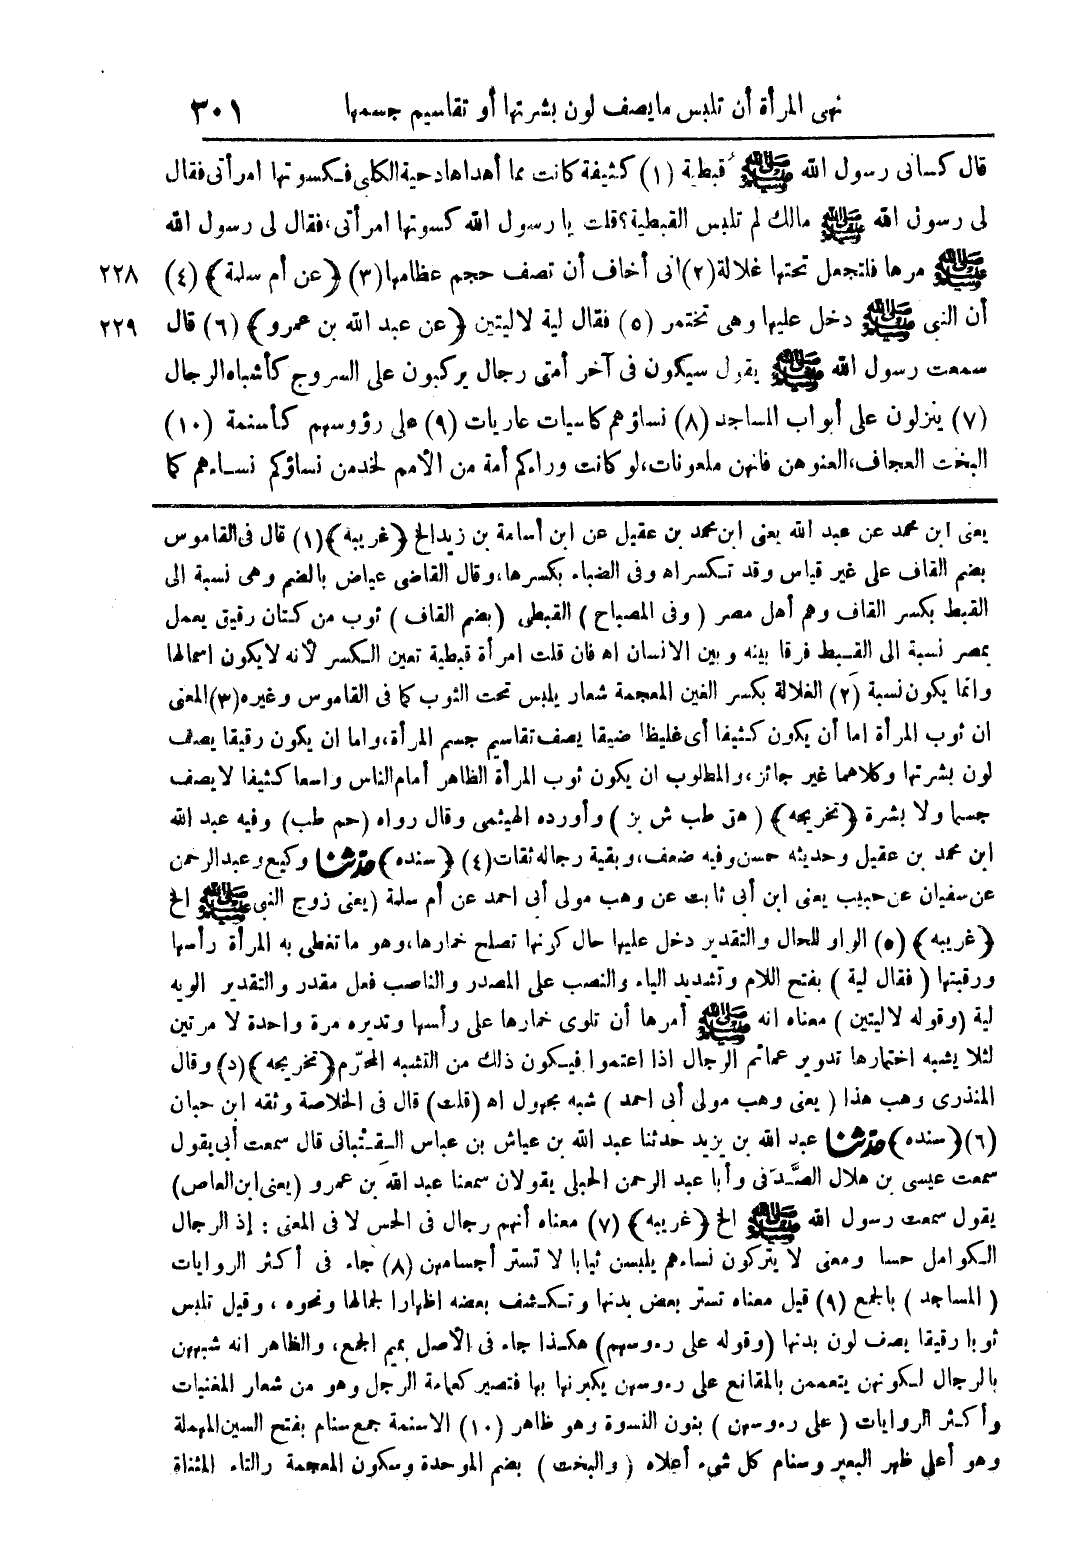 نهى المرأة أن تلبس ما يصف لون بشرتها أو تقاسيم جسمها ٣٠١
قال كسانى رسول الله ﷺ قبطية (١) كثيفة كانت مما أهداها دحية الكلبى فكسوتها امرأتى فقال
لى رسول الله ﷺ مالك لم تلبس القبطية؟ قلت يا رسول الله كسوتها امرأتى، فقال لى رسول الله
ﷺ مرها فلتجعل تحتها غلالة (٢) انى أخاف أن تصف حجم عظامها (٣) ﴿عن أم سلمة﴾ (٤) ٢٢٨
أن النبى ﷺ دخل عليها وهى تختمر (٥) فقال لية لا ليتين ﴿عن عبد الله بن عمرو﴾ (٦) قال ٢٢٩
سمعت رسول الله ﷺ يقول سيكون فى آخر أمتى رجال يركبون على السروج كأشباه الرجال
(٧) ينزلون على أبواب المساجد (٨) نساؤهم كاسيات عاريات (٩) على رؤوسهم كأسنمة (١٠)
البخت العجاف، العنوهن فانهن ملعونات، لو كانت وراءكم أمة من الأمم لخدمن نساؤكم نساءهم كما
يعنى ابن محمد عن عبد الله يعنى ابن محمد بن عقيل عن ابن أسامة بن زيد الخ ﴿غريبه﴾ (١) قال فى القاموس
بضم القاف على غير قياس وقد تكسر اه وفى الضياء بكسرها، وقال القاضى عياض بالضم وهى نسبة الى
القبط بكسر القاف وهم أهل مصر (وفى المصباح) القبطى (بضم القاف) ثوب من كتان رقيق يعمل
بمصر نسبة الى القبط فرقا بينه وبين الانسان اه فان قلت امرأة قبطية تعين الكسر لأنه لا يكون اسما لها
وانما يكون نسبة (٢) الغلالة بكسر الغين المعجمة شعار يلبس تحت الثوب كما فى القاموس وغيره (٣) المعنى
ان ثوب المرأة اما أن يكون كثيفا أى غليظا ضيقا يصف تقاسيم جسم المرأة، واما ان يكون رقيقا يصف
لون بشرتها وكلاهما غير جائز، والمطلوب ان يكون ثوب المرأة الظاهر أمام الناس واسعا كثيفا لا يصف
جسما ولا بشرة ﴿تخريجه﴾ (هق طب ش بز) وأورده الهيثمى وقال رواه (حم طب) وفيه عبد الله
ابن محمد بن عقيل وحديثه حسن وفيه ضعف، وبقية رجاله ثقات (٤) ﴿سنده﴾ حدثنا وكيع وعبد الرحمن
عن سفيان عن حبيب يعنى ابن أبى ثابت عن وهب مولى أبى احمد عن أم سلمة (يعنى زوج النبى ﷺ الخ
﴿غريبه﴾ (٥) الواو للحال والتقدير دخل عليها حال كونها تصلح خمارها، وهو ما تغطى به المرأة رأسها
ورقبتها (فقال لية) بفتح اللام وتشديد الياء والنصب على المصدر والناصب فعل مقدر والتقدير الويه
لية (وقوله لا ليتين) معناه انه ﷺ أمرها أن تلوى خمارها على رأسها وتديره مرة واحدة لا مرتين
لئلا يشبه اختمارها تدوير عمائم الرجال اذا اعتموا فيكون ذلك من التشبه المحرّم ﴿تخريجه﴾ (د) وقال
المنذرى وهب هذا (يعنى وهب مولى أبى احمد) شبه مجهول اه (قلت) قال فى الخلاصة وثقه ابن حبان
(٦) ﴿سنده﴾ حدثنا عبد الله بن يزيد حدثنا عبد الله بن عياش بن عباس القِتْبانى قال سمعت أبى يقول
سمعت عيسى بن هلال الصَّدَفى وأبا عبد الرحمن الحبلى يقولان سمعنا عبد الله بن عمرو (يعنى ابن العاص)
يقول سمعت رسول الله ﷺ الخ ﴿غريبه﴾ (٧) معناه أنهم رجال فى الحس لا فى المعنى : إذ الرجال
الكوامل حسا ومعنى لا يتركون نساءهم يلبسن ثيابا لا تستر أجسامهن (٨) جاء فى أكثر الروايات
(المساجد) بالجمع (٩) قيل معناه تستر بعض بدنها وتكشف بعضه اظهارا لجمالها ونحوه، وقيل تلبس
ثوبا رقيقا يصف لون بدنها (وقوله على رءوسهم) هكذا جاء فى الأصل بميم الجمع، والظاهر انه شبههن
بالرجال لكونهن يتعممن بالمقانع على رءوسهن يكبرنها بها فتصير كعمامة الرجل وهو من شعار المغنيات
وأكثر الروايات (على رءوسهن) بنون النسوة وهو ظاهر (١٠) الاسنمة جمع سنام بفتح السين المهملة
وهو أعلى ظهر البعير وسنام كل شىء أعلاه (والبخت) بضم الموحدة وسكون المعجمة والتاء المثناة